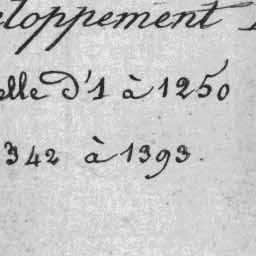 eloppement
elle d'1 à 1250
342 à 1393.